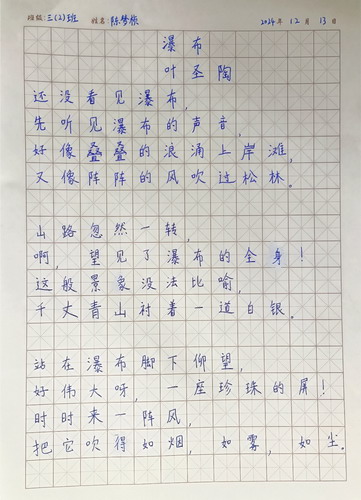 班级:三(2)班 姓名:陈梦旅 2024年 12月 13日
瀑布
叶圣陶
还没看见瀑布,
先听见瀑布的声音,
好像叠叠的浪涌上岸滩,
又像阵阵的风吹过松林。
山路忽然一转,
啊, 望见了瀑布的全身!
这般景象没法比喻,
千丈青山衬着一道白银。
站在瀑布脚下仰望,
好伟大呀, 一座珍珠的屏!
时时来一阵风,
把它吹得如烟, 如雾, 如尘。